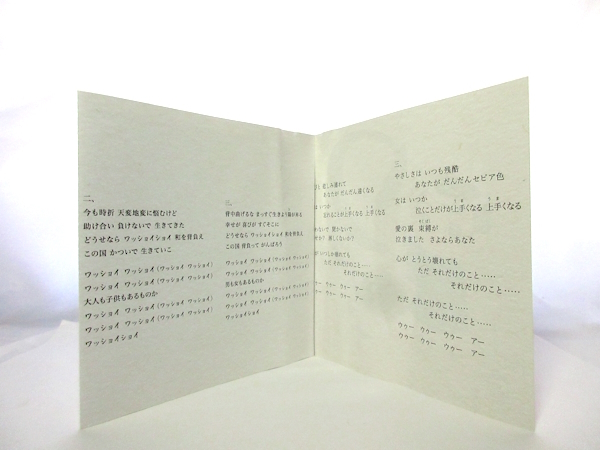 二、
今も時折 天変地変に悩むけど
助け合い 負けないで 生きてきた
どうせなら ワッショイショイ 和を背負え
この国 かついで 生きていこ
ワッショイ ワッショイ(ワッショイ ワッショイ)
ワッショイ ワッショイ(ワッショイ ワッショイ)
大人も子供もあるものか
ワッショイ ワッショイ(ワッショイ ワッショイ)
ワッショイ ワッショイ(ワッショイ ワッショイ)
ワッショイショイ
三、
背中曲げるな まっすぐ生きよう
幸せが 喜びが すぐそこに
どうせなら ワッショイショイ 和を背負え
この国 背負って がんばろう
ワッショイ ワッショイ(ワッショイ ワッショイ)
ワッショイ ワッショイ(ワッショイ ワッショイ)
男も女もあるものか
ワッショイ ワッショイ(ワッショイ ワッショイ)
ワッショイ ワッショイ(ワッショイ ワッショイ)
ワッショイショイ
あなたが だんだん遠くなる
いつか
上手くなる 上手くなる
ないで 聞かないで
しないか?
れても
ただ それだけのこと……
それだけのこと……
ウゥー ウゥー アー
ウゥー ウゥー アー
三、
やさしさは いつも残酷
あなたが だんだん セピア色
女は いつか
泣くことだけが上手くなる 上手くなる
愛の裏 束縛が
泣きました さよならあなた
心が とうとう壊れても
ただ それだけのこと……
それだけのこと……
ただ それだけのこと……
それだけのこと……
ウゥー ウゥー ウゥー アー
ウゥー ウゥー ウゥー アー